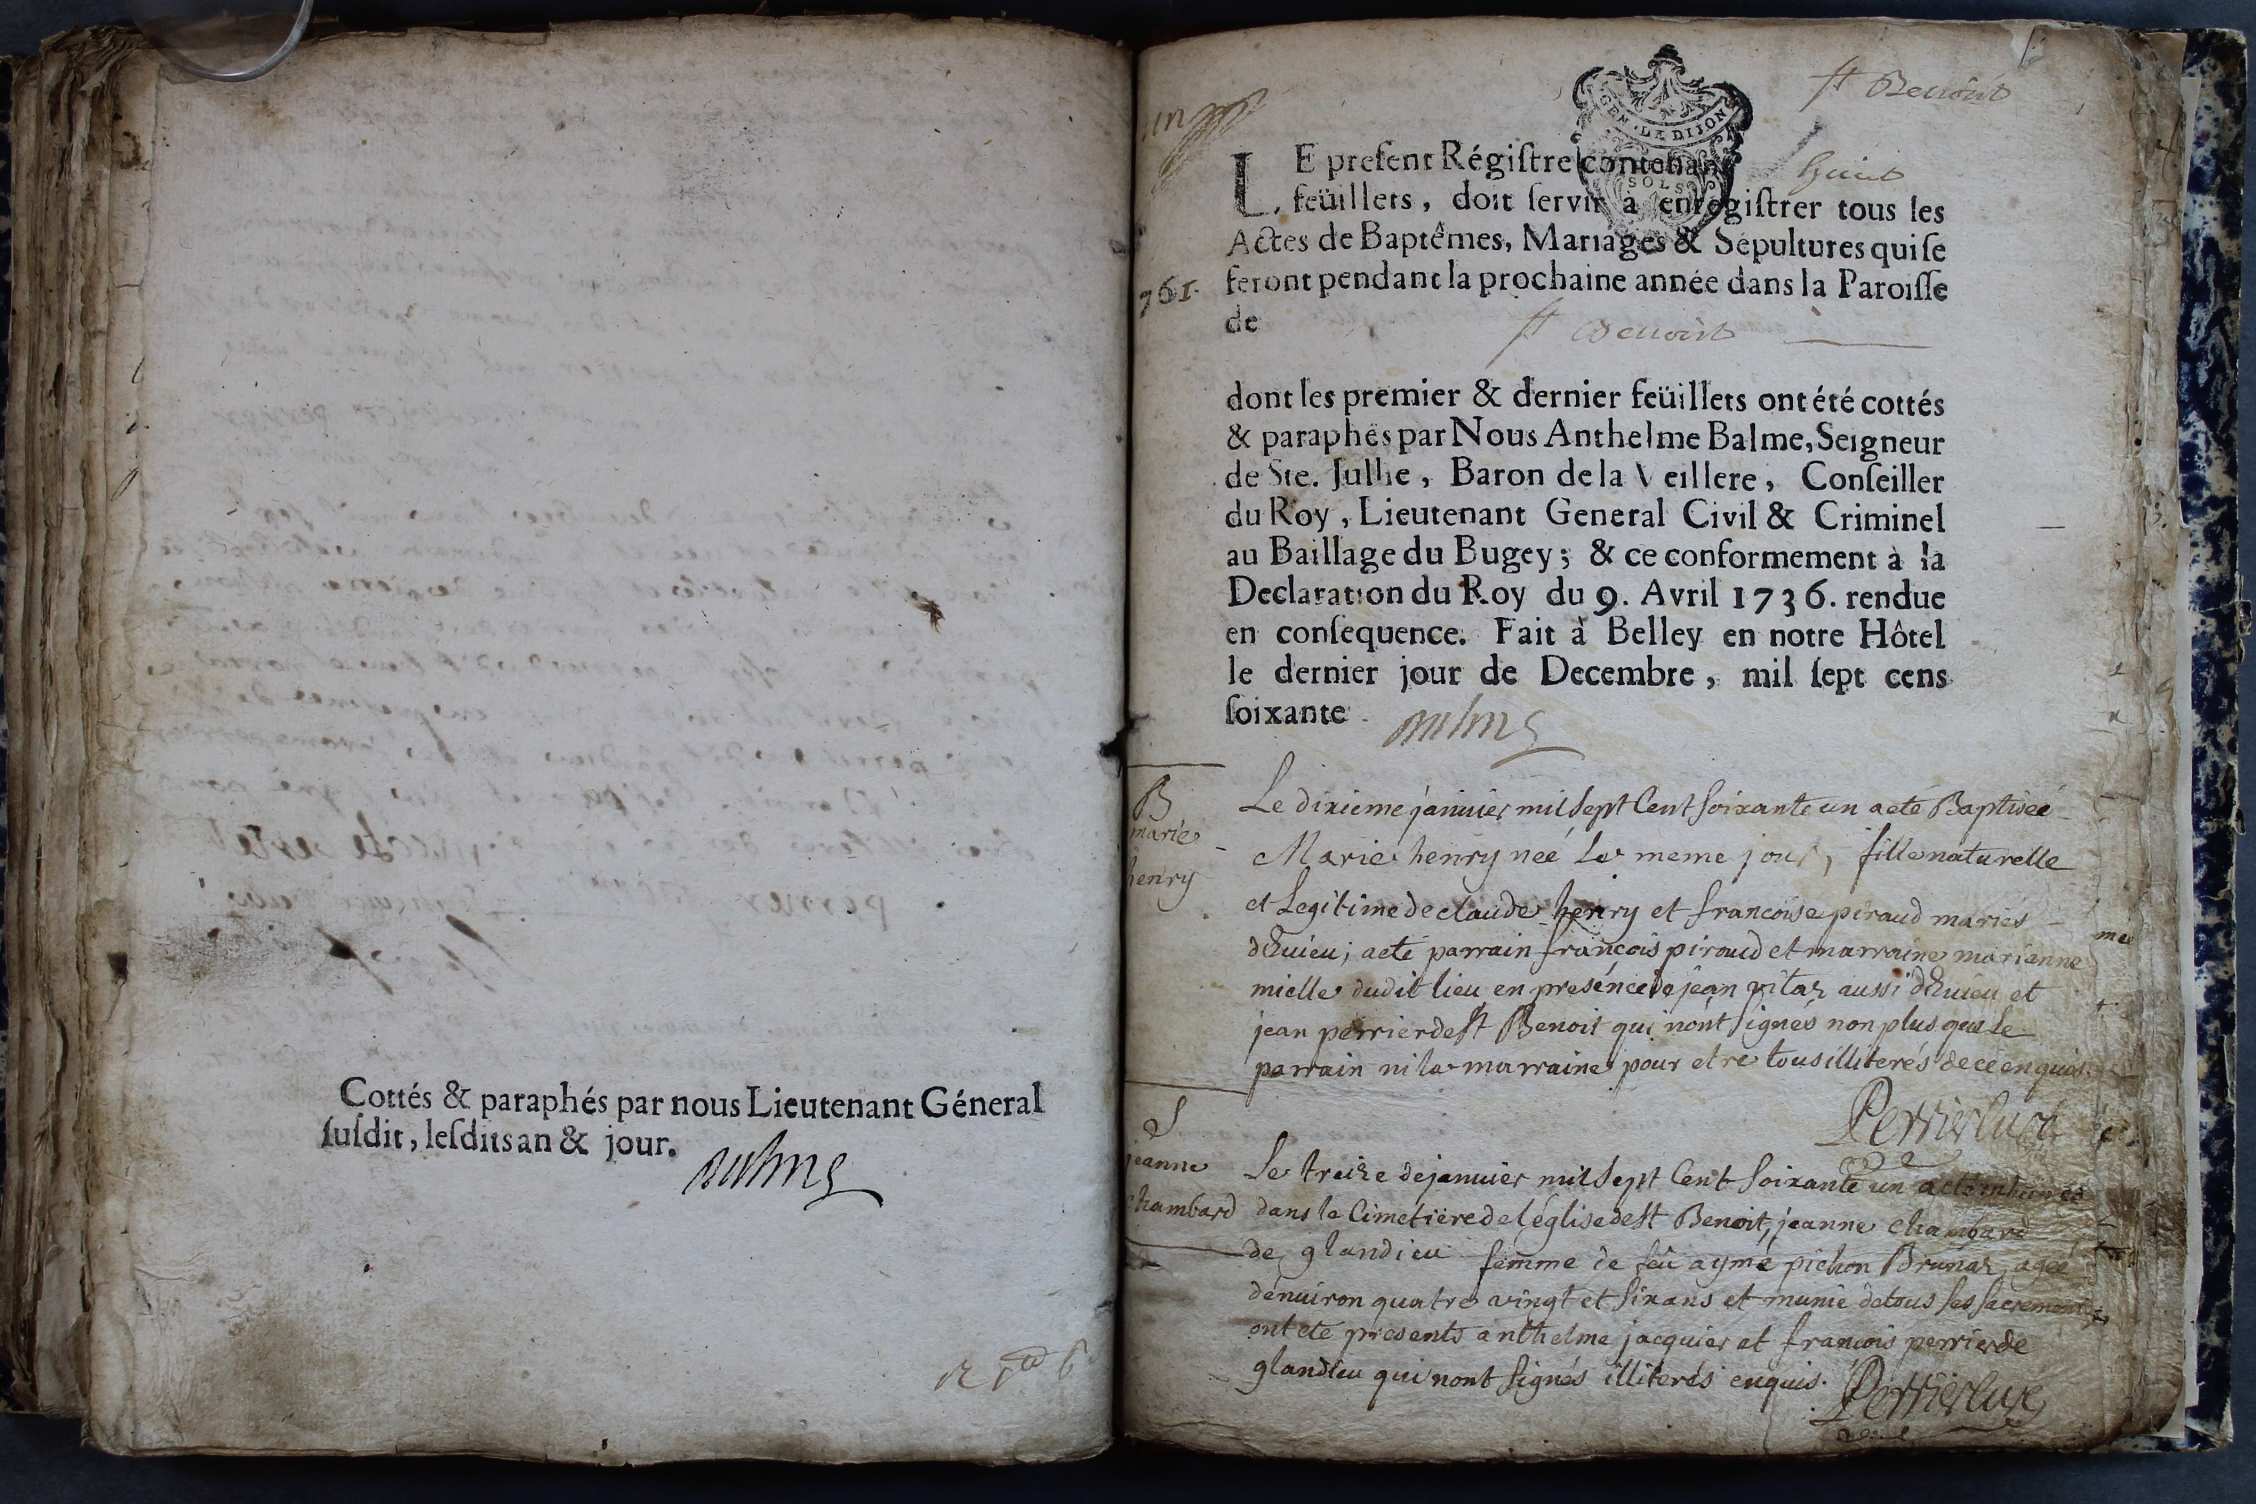 Cottés & paraphés par nous Lieutenant Géneral
susdit, lesdits an & jour.
GEN. DE DIJON
SOLS
st Benoist
LE present Régistre contenant huict
feüillets, doit servir à enregistrer tous les
Actes de Baptêmes, Mariages & Sépultures qui se
feront pendant la prochaine année dans la Paroisse
de st Benoist
761.
dont les premier & dernier feüillets ont été cottés
& paraphés par Nous Anthelme Balme, Seigneur
de Ste. Julhe, Baron de la Veillere, Conseiller
du Roy, Lieutenant General Civil & Criminel
au Baillage du Bugey; & ce conformement à la
Declaration du Roy du 9. Avril 1736. rendue
en consequence. Fait à Belley en notre Hôtel
le dernier jour de Decembre, mil sept cens
soixante.
B
marie
henry
Le dixieme janvier mil sept Cent soixante un a eté Baptiseé
Marie henry née le meme jour, fille naturelle
et Legitime de claude henry et francoise piraud mariés
dEvieu; a eté parrain francois piraud et marraine marianne
mielle dudit lieu en presénce de jean pitaz aussi dEvieu et
jean perrier de st Benoit qui n'ont signés non plus que le
parrain ni la marraine pour etre tous illiterés de ce enquis.
Perrier curé
S
jeanne
chambard
Le treize de janvier mil sept Cent soixante un a eté inhumeé
dans le Cimetiëre de l'église de st Benoit, jeanne chambard
de glandieu femme de feu aymé pichon Brunaz, ageé
dénviron quatre vingt et six ans et munie de tous ses sacremens
ont eté presents anthelme jacquier et francois perrier de
glandieu qui nont signés illiterés enquis. Perrier curé